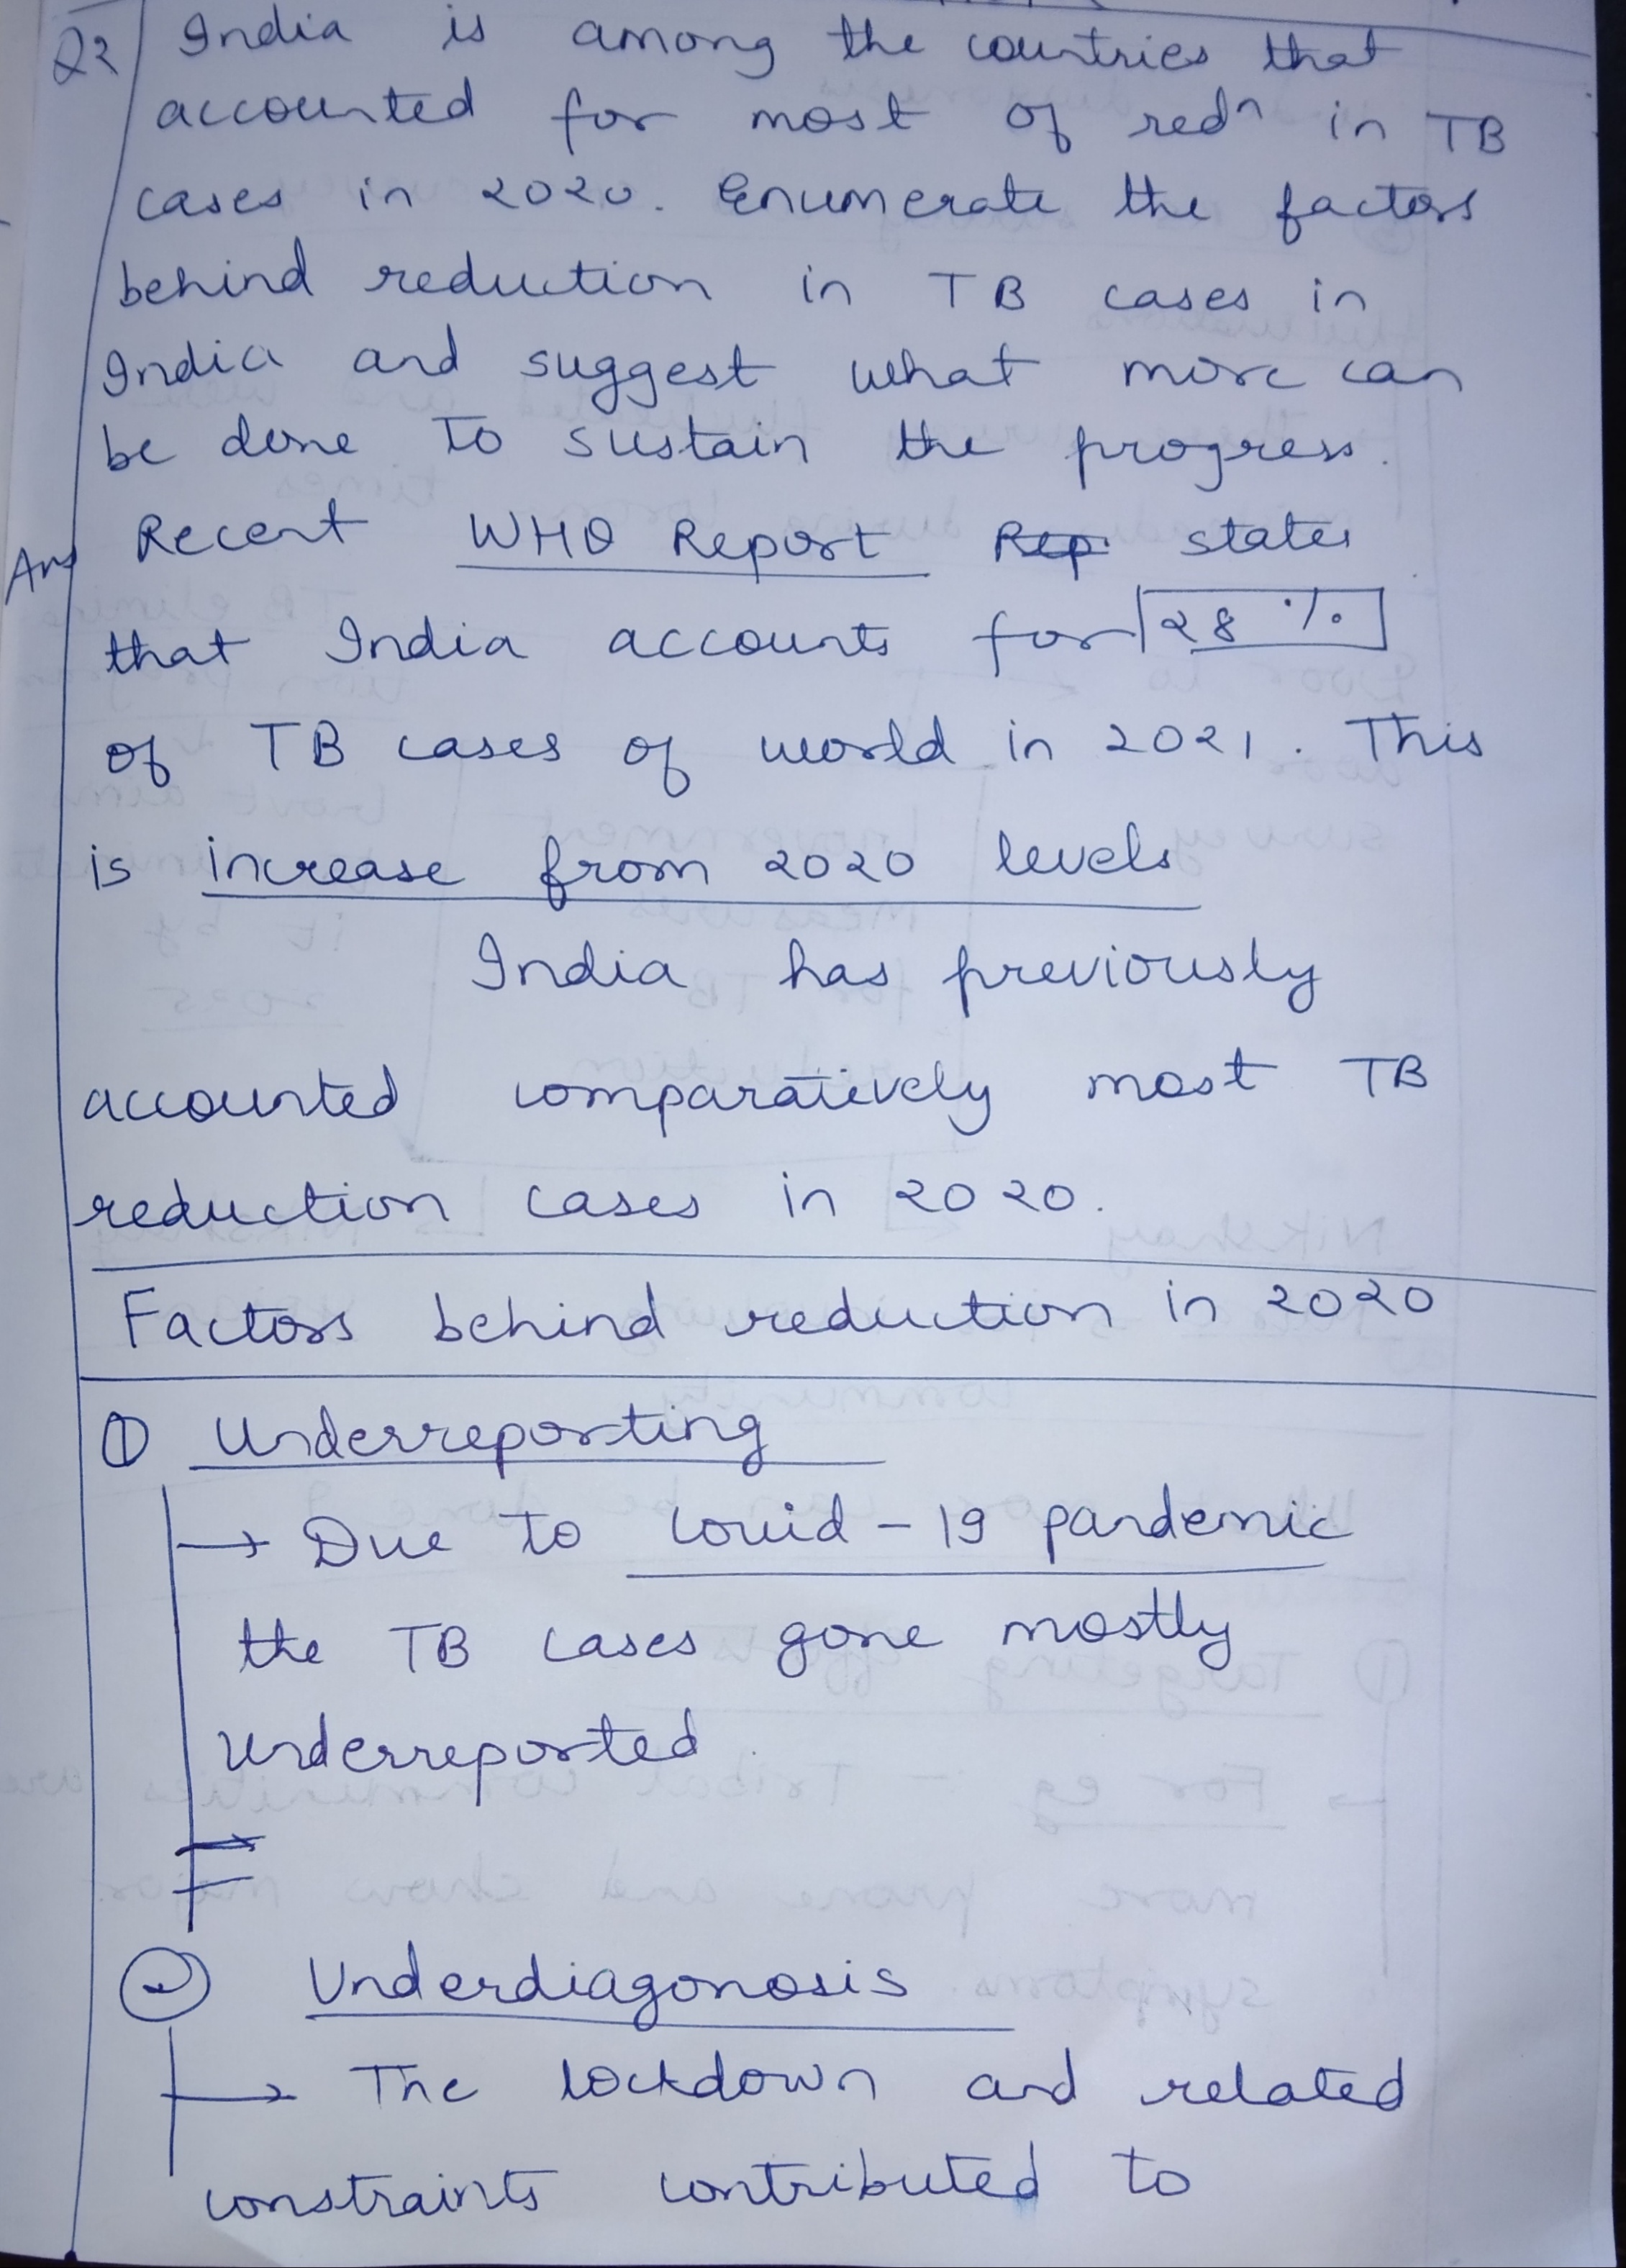 Q2 India is among the countries that
accounted for most of redn in TB
cases in 2020. Enumerate the factors
behind reduction in TB cases in
India and suggest what more can
be done to sustain the progress.
Ans Recent WHO Report Rep states
that India accounts for 28 %
of TB cases of world in 2021. This
is increase from 2020 levels
India has previously
accounted comparatively most TB
reduction cases in 2020.
Factors behind reduction in 2020
① Underreporting
→ Due to Covid-19 pandemic
the TB cases gone mostly
underreported
② Underdiagonosis
→ The lockdown and related
constraints contributed to